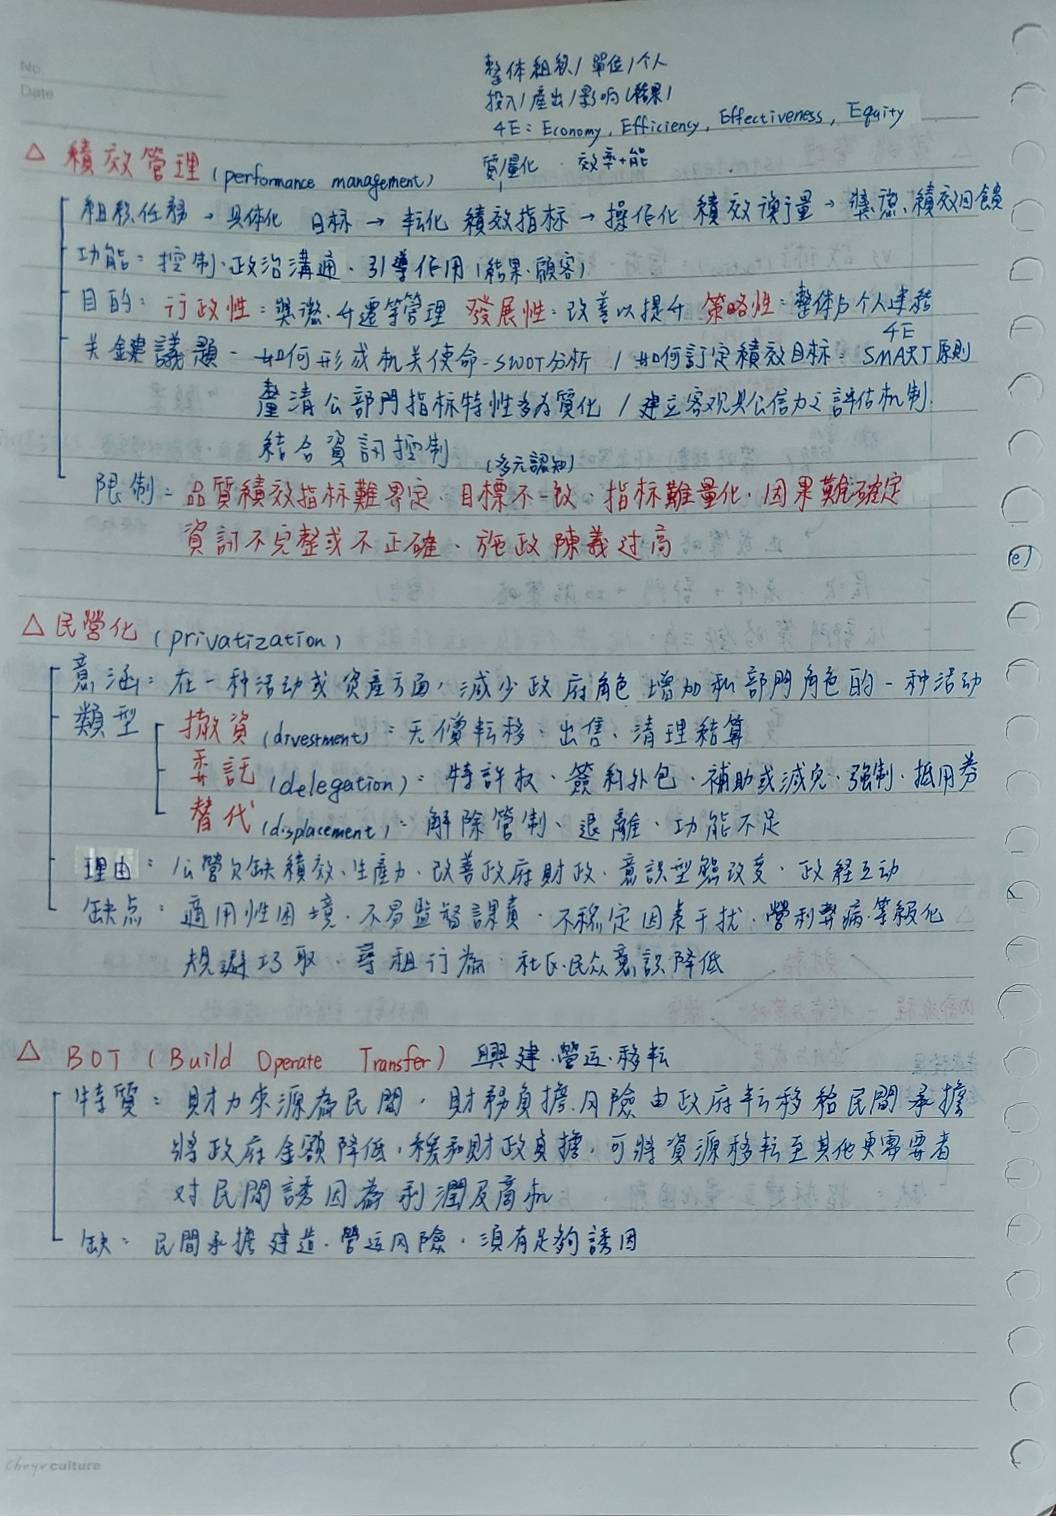 No.
Date
整体組織/單位/个人
投入/產出/影响(結果)
4E: Economy, Efficiency, Effectiveness, Equity
質/量化 · 效率+能
△ 積效管理(performance management)
組織任務→具体化 目标→転化 積效指标→操作化 積效測量→獎懲、績效回饋
功能:控制、政治溝通、引導作用(結果、顧客)
目的:行政性:獎懲、升遷等管理 發展性:改善以提升 策略性:整体与个人連結
4E
关鍵議題-如何形成机关使命-SWOT分析 / 如何訂定績效目标:SMART原則
釐清公部門指标特性多为質化 / 建立客观具公信力之評估机制
結合資訊控制
(多元認知)
限制:品質積效指标難界定、目標不一致、指标難量化、因果難確定
資訊不完整或不正確、施政陳義过高
△ 民營化(privatization)
意涵:在一种活动或資產方面,減少政府角色,增加私部門角色的一种活动
類型
撤資(divestment):无償転移、出售、清理結算
委託(delegation):特許权、簽約外包、補助或減免、強制、抵用券
替代(displacement):解除管制、退離、功能不足
理由:公營欠缺積效、生產力、改善政府財政、意識型態改变、政経互动
缺点:適用性困境、不易監督課責、不穩定因素干扰、營利弊病、等級化
規避巧取、尋租行為、社区民众意識降低
△ BOT(Build Operate Transfer)興建、營运、移転
特質:財力來源為民間,財務負擔、风險由政府転移給民間承擔
將政府金額降低,緩和財政負擔,可將資源移転至其他更需要者
对民間誘因為利潤及商机
缺:民間承擔建造、營运风險,須有足夠誘因
culture